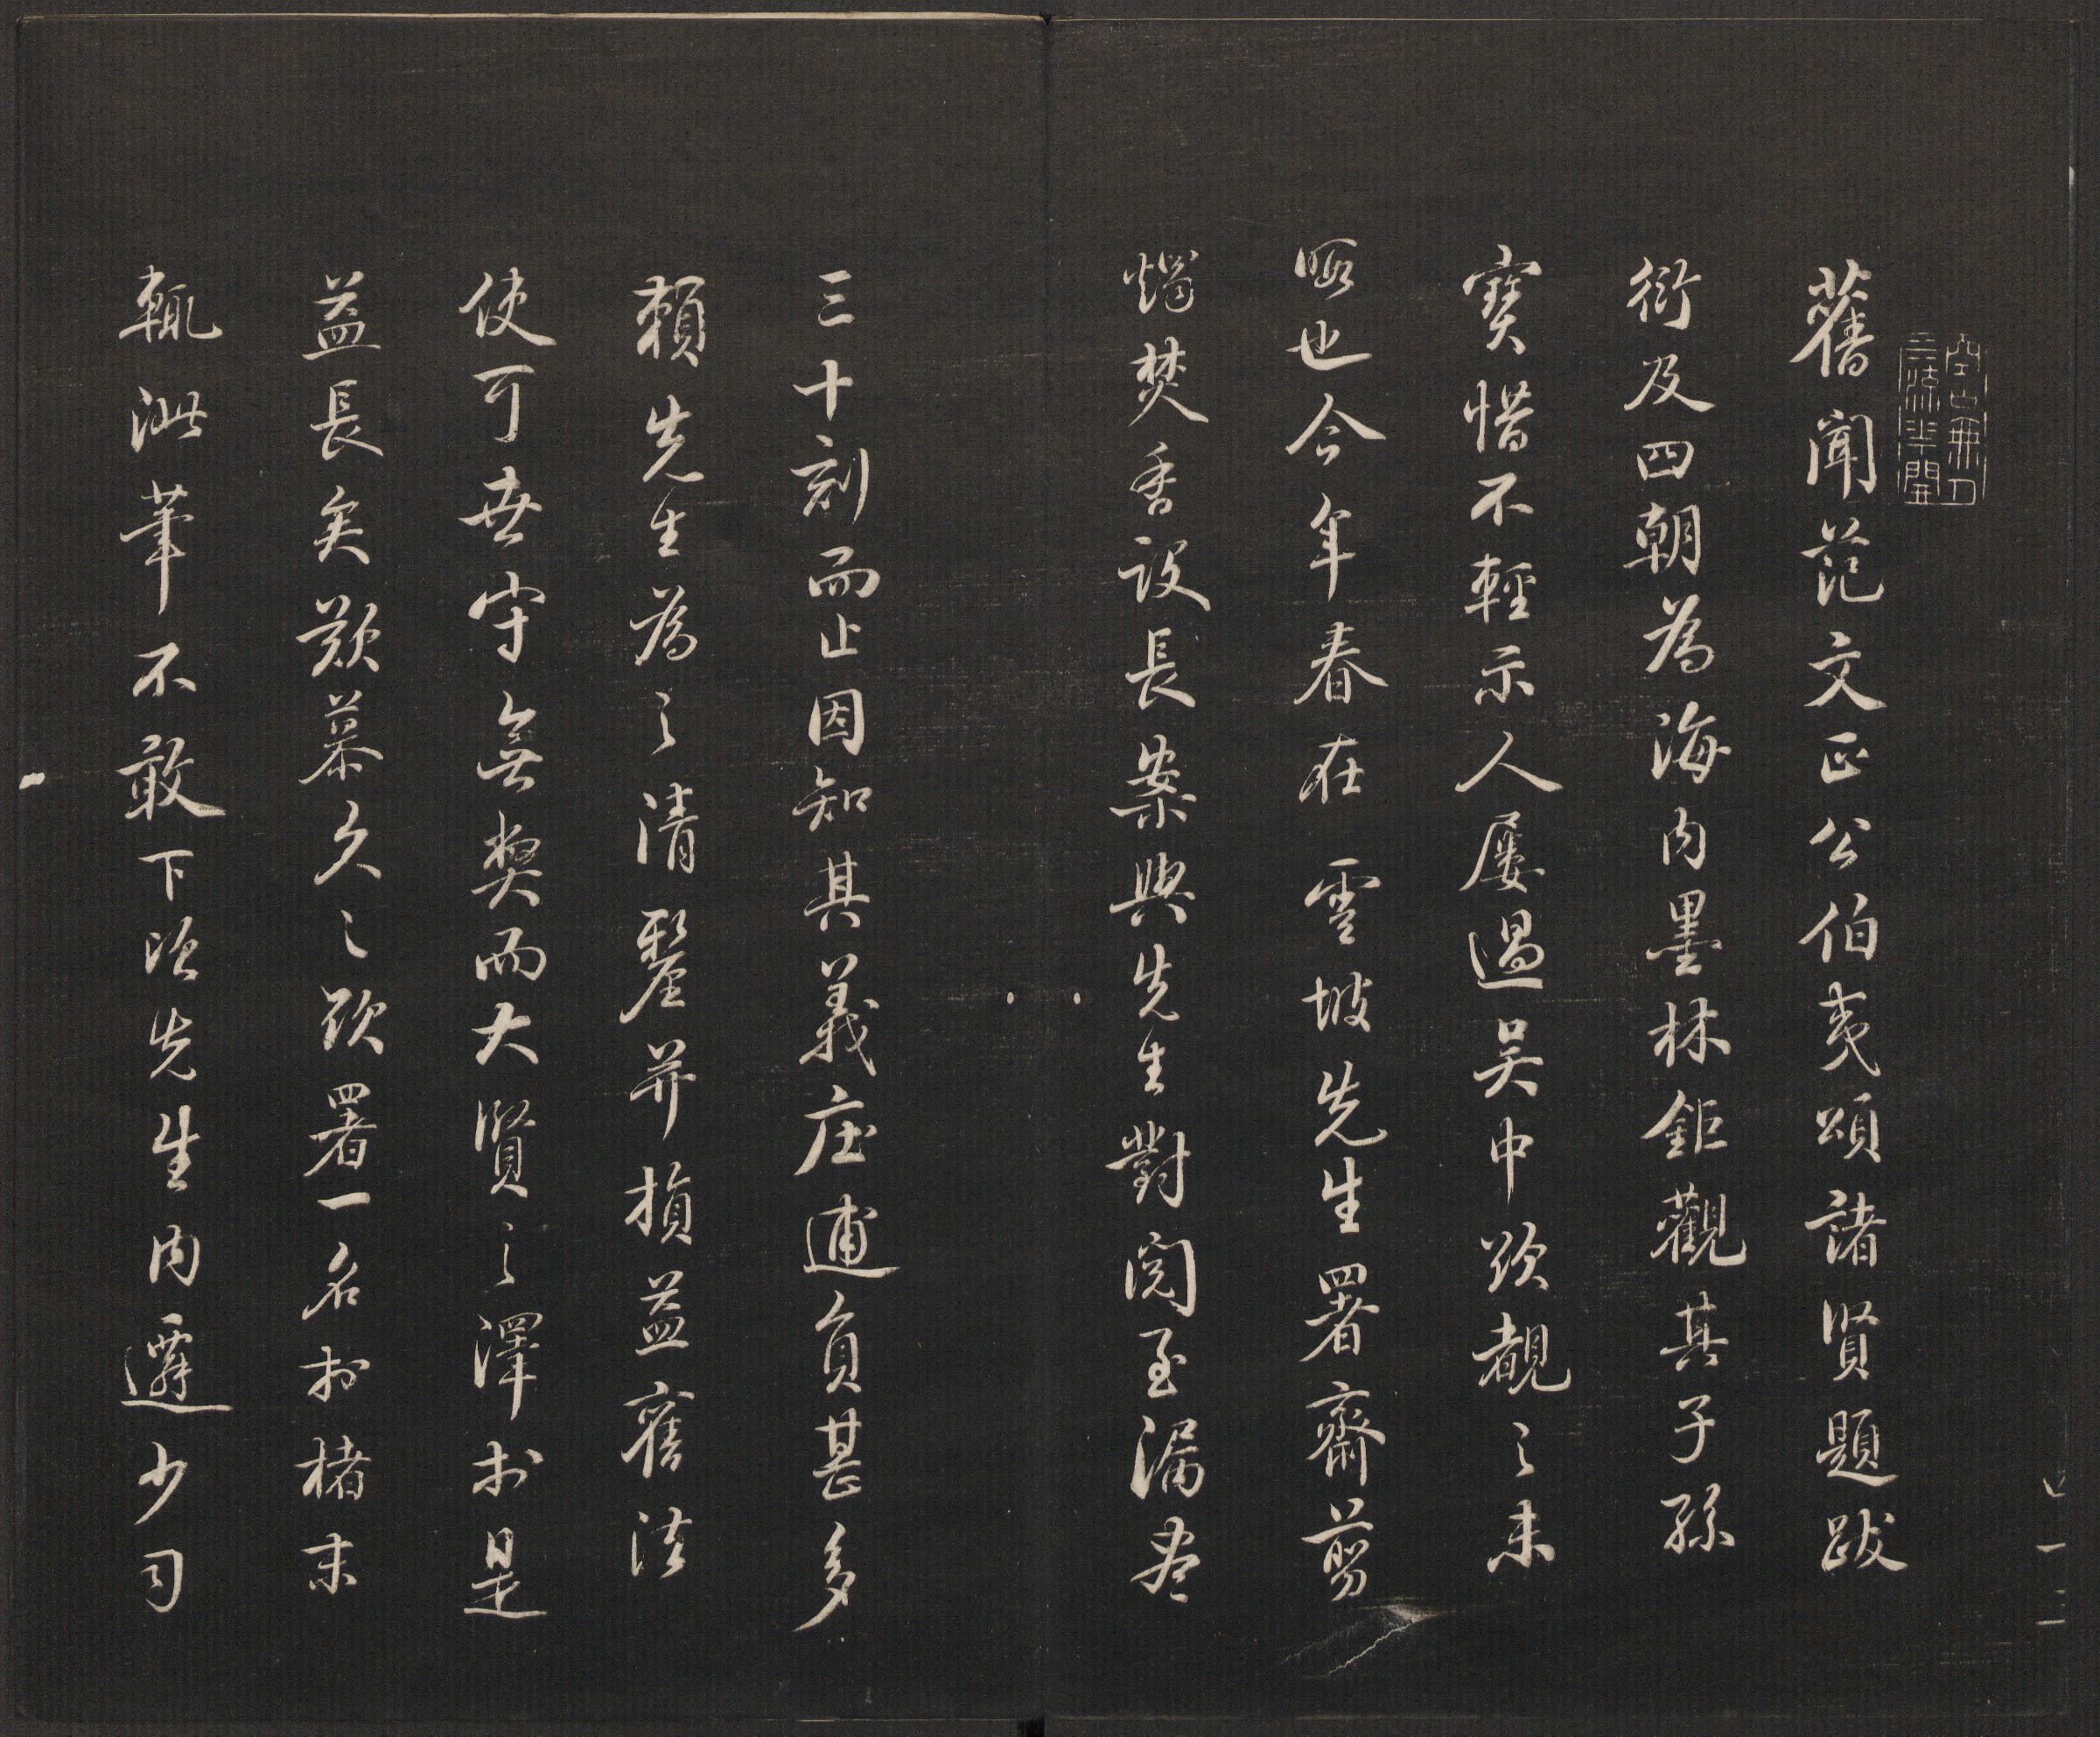 舊聞范文正公伯夷頌諸賢題跋
衍及四朝為海内墨林鉅觀其子孫
寶惜不輕示人屢過吴中欲覩之未
暇也今年春在雲坡先生署齋剪
燭焚香設長案與先生對閲至漏盡
三十刻而止因知其義庄逋負甚多
賴先生為之清釐并損益舊法
使可世守無獘而大賢之澤於是
益長矣歎慕久之欲署一名於楮末
輒泚筆不敢下次先生内遷少司